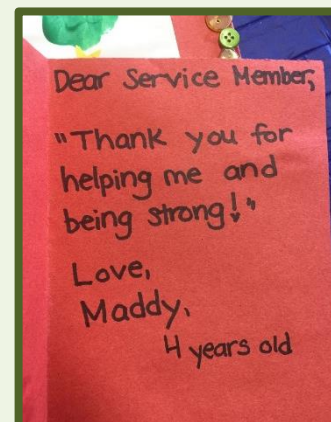 Dear Service Member,
"Thank you for
helping me and
being strong!"
Love,
Maddy,
4 years old